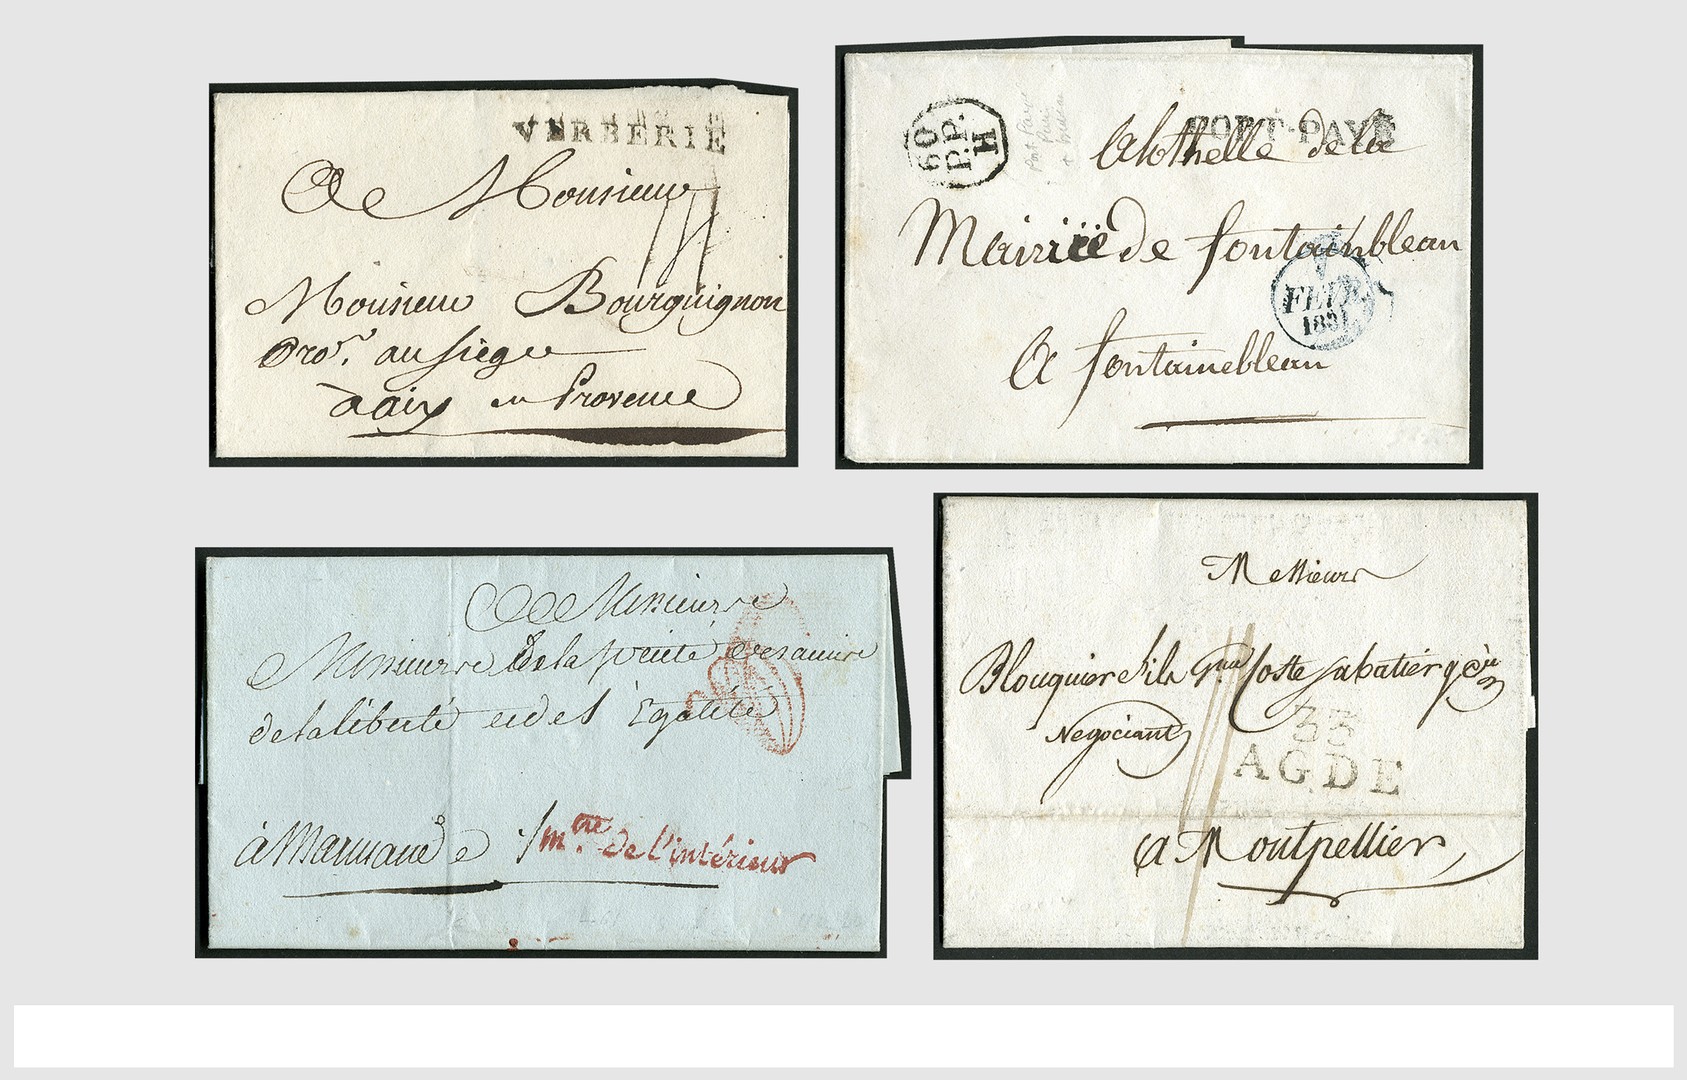 VERBERIE
A Monsieur
Monsieur Bourguignon
Pror. au siège
à aix en Provence
60
P.P.
H
PORT-PAYÉ
A l'othelle de la
Mairiië de fontainbleau
7
FEVR
1831
A fontainebleau
A Messieurs
Messieurs de la société des amis
de la liberté et de l'Egalité
à Marmande
mtre de l'intérieur
Messieurs
Blouquier fils Coste Sabatier
Negociants
33
AGDE
A Montpellier